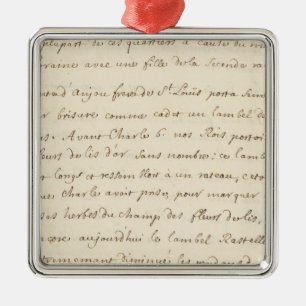 plupart de ces quartiers a cause du m
raine avec une fille de la Seconde ra
d'Anjou frere de St. Louïs porta Sem
r brisure comme cadet un lambel de
s. Avant Charle 6. nos Rois portoi
leurs de lis d'or Sans nombre; ce lamb
longs et ressembloit à un rateau, c'et
Charle avoit pris, pour marquer
ses herbes du Champ des fleurs de lis.
core aujourdhui le lambel Rastelle